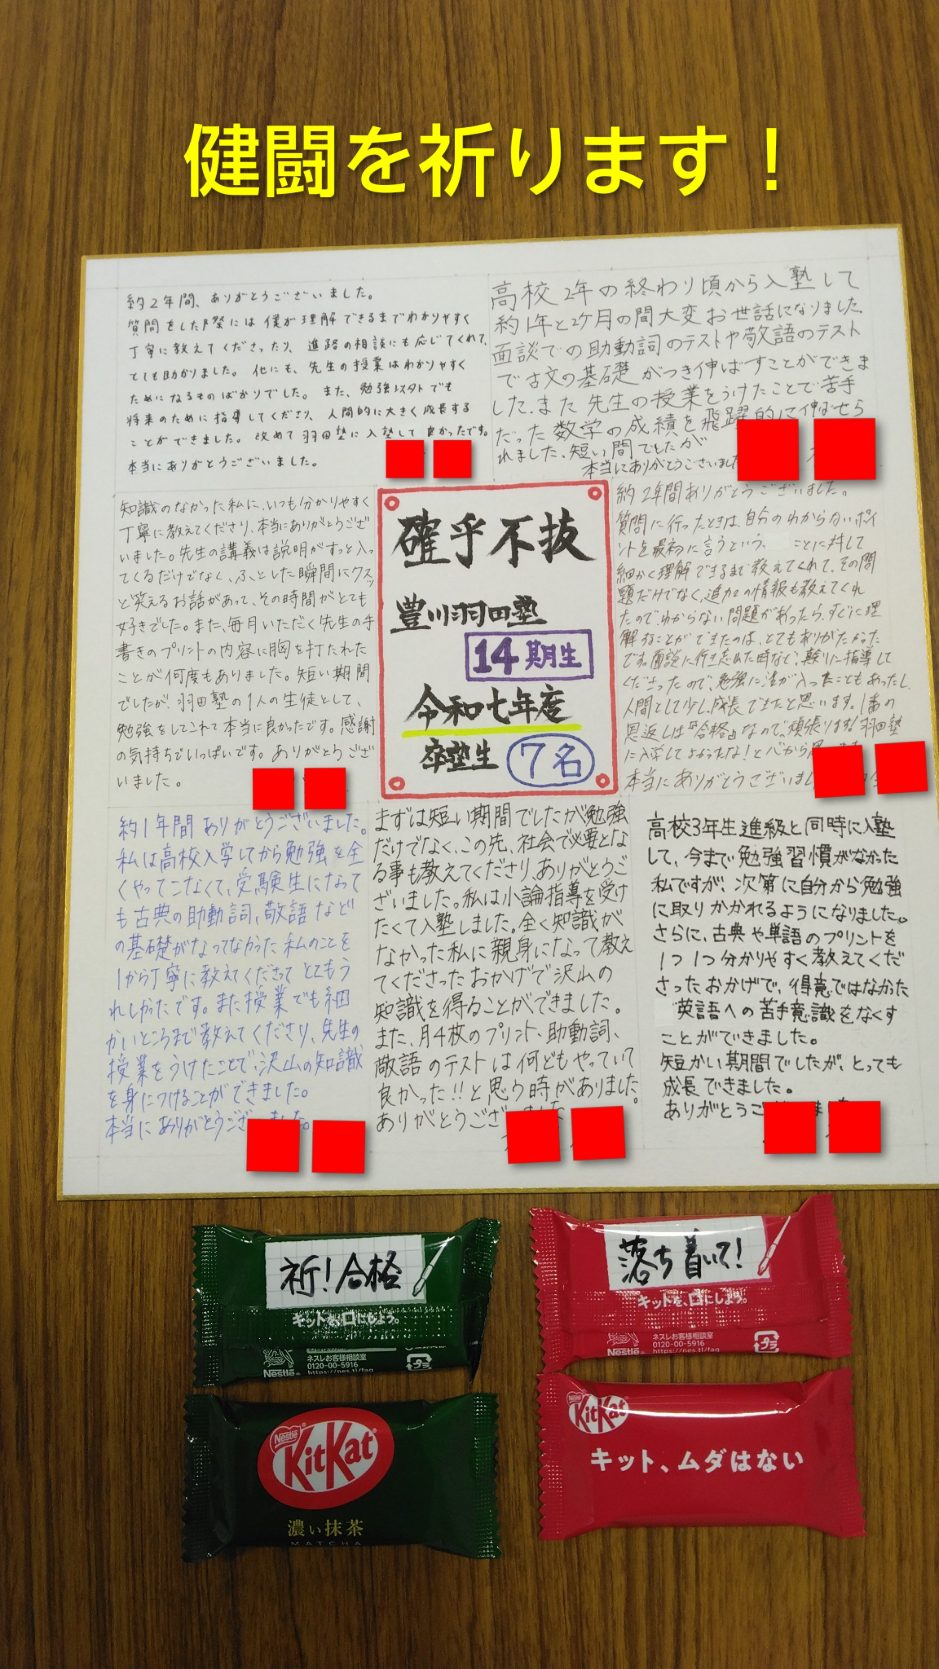 健闘を祈ります！
約2年間、ありがとうございました。
質問をした際には僕が理解できるまでわかりやすく
丁寧に教えてくださったり、進路の相談にも応じてくれて、
とても助かりました。他にも、先生の授業はわかりやすく
ためになるものばかりでした。また、勉強以外でも
将来のために指導してくださり、人間的に大きく成長する
ことができました。改めて羽田塾に入塾して良かったです。
本当にありがとうございました。
高校2年の終わり頃から入塾して
約1年と2ヶ月の間大変お世話になりました。
面談での助動詞のテストや敬語のテスト
で古文の基礎がつき伸ばすことができま
した。また先生の授業をうけたことで苦手
だった数学の成績を飛躍的に伸ばせら
れました。短い間でしたが
本当にありがとうございました
知識のなかった私に、いつも分かりやすく
丁寧に教えてくださり、本当にありがとうござ
いました。先生の講義は説明がすっと入っ
てくるだけでなく、ふとした瞬間にクスッ
と笑えるお話があって、その時間がとても
好きでした。また、毎月いただく先生の手
書きのプリントの内容に胸を打たれた
ことが何度もありました。短い期間
でしたが、羽田塾の1人の生徒として、
勉強をしてこれて本当に良かったです。感謝
の気持ちでいっぱいです。ありがとうござ
いました。
確乎不抜
豊川羽田塾
14期生
令和七年度
卒塾生 7名
約2年間ありがとうございました。
質問に行ったときは、自分のわからないポイ
ントを最初に言うという、ことに対して
細かく理解できるまで教えてくれて、その問
題だけでなく、追加の情報も教えてくれ
たので、わからない問題があったら、すぐに理
解することができたのは、とてもありがたかった
です。面談に行き忘れた時など、熱心に指導して
くださったので、勉強に活が入ったこともあったし、
人間として少し成長できたと思います。1番の
恩返しは『合格』なので、頑張ります！羽田塾
に入学してよかったな！と心から
本当にありがとうございまし
約1年間ありがとうございました。
私は高校入学してから勉強を全
くやってこなくて、受験生になって
も古典の助動詞、敬語など
の基礎がなってなかった私のことを
1から丁寧に教えてくださって とてもう
れしかったです。また授業でも細
かいところまで教えてくださり、先生の
授業をうけたことで、沢山の知識
を身につけることができました。
本当にありがとうございました。
まずは短い期間でしたが勉強
だけでなく、この先、社会で必要とな
る事も教えてくださり、ありがとうご
ざいました。私は小論指導を受け
たくて入塾しました。全く知識が
なかった私に親身になって教え
てくださったおかげで沢山の
知識を得ることができました。
また、月4枚のプリント、助動詞、
敬語のテストは何どもやっていて
良かった!!と思う時がありました。
ありがとうございました
高校3年生進級と同時に入塾
して、今まで勉強習慣がなかった
私ですが、次第に自分から勉強
に取りかかれるようになりました。
さらに、古典や単語のプリントを
1つ1つ分かりやすく教えてくだ
さったおかげで、得意ではなかった
英語への苦手意識をなくす
ことができました。
短かい期間でしたが、とっても
成長できました。
ありがとうございました
祈！合格
キットを、口にしよう。
ネスレお客様相談室
0120-00-5916
https://nes.tl/faq
Nestlé
落ち着いて！
キットを、口にしよう。
ネスレお客様相談室
0120-00-5916
https://nes.tl/faq
Nestlé
プラ
Nestlé
KitKat
濃い抹茶
MATCHA
Nestlé
KitKat
キット、ムダはない